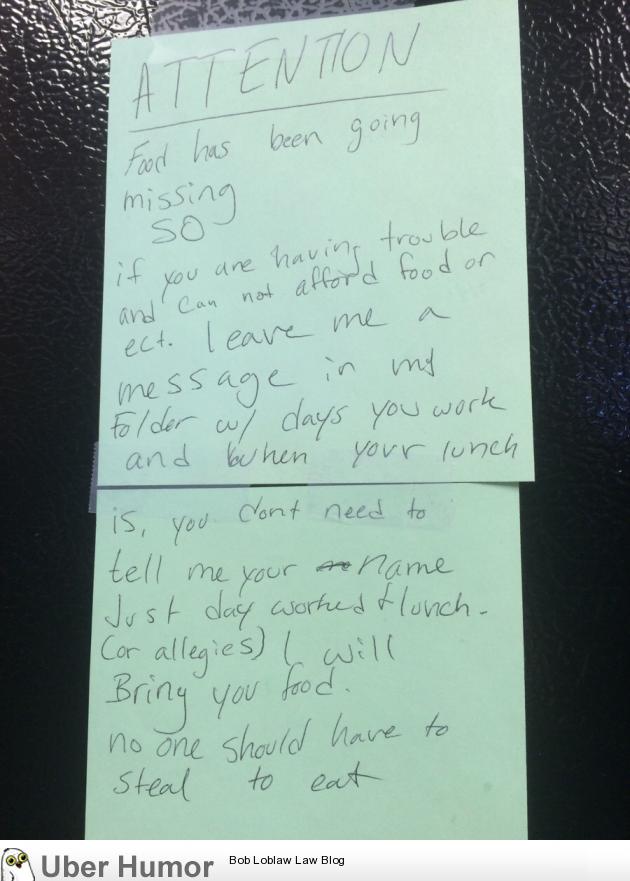 ATTENTION
Food has been going
missing
SO
if you are having trouble
and can not afford food or
ect. leave me a
message in my
folder w/ days you work
and when your lunch
is, you dont need to
tell me your name
Just day worked & lunch.
(or allegies) I will
Bring you food.
no one should have to
steal to eat
Uber Humor
Bob Loblaw Law Blog